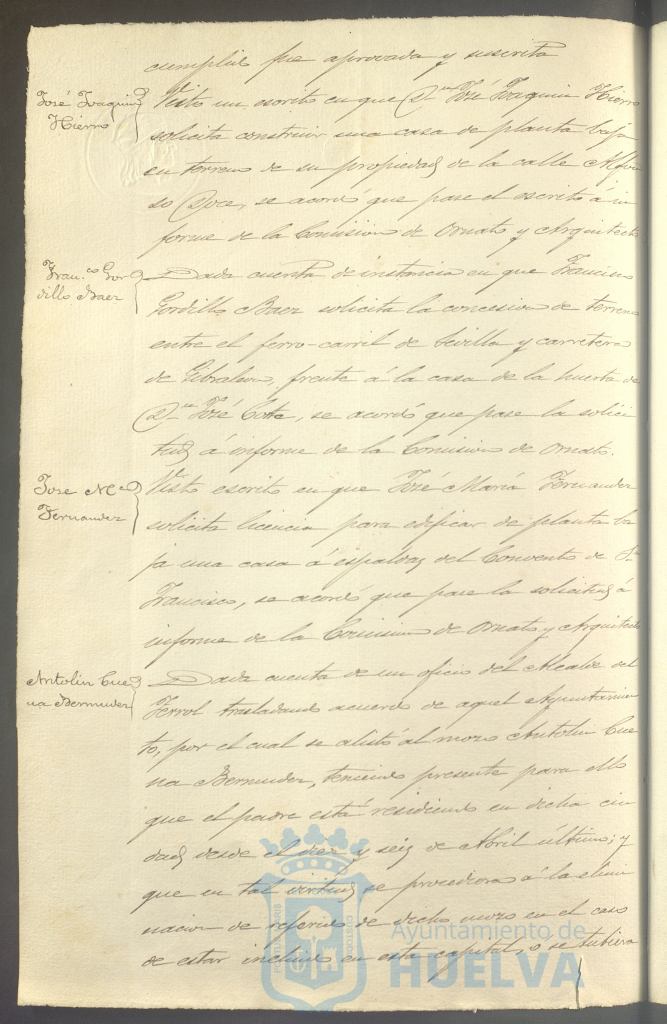 cumplir fue aprovada y suscrita
José Joaquin
Hierro
Visto un escrito en que Dn José Joaquin Hierro
solicita construir una casa de planta baja
en terreno de su propiedad de la calle Alfon
so Doce, se acordó que pase el escrito á in
forme de la Comision de Ornato y Arquitecto
Fran.co Gor
dillo Baez
Dada cuenta de instancia en que Francisco
Gordillo Baez solicita la concesion de terreno
entre el ferro-carril de Sevilla y carretera
de Gibraleon, frente á la casa de la huerta de
Dn José Cote, se acordó que pase la solici
tud á informe de la Comision de Ornato.
Jose M.a
Fernandez
Visto escrito en que José María Fernandez
solicita licencia para edificar de planta ba
ja una casa á espaldas del Convento de Sn
Francisco, se acordó que pase la solicitud á
informe de la Comision de Ornato y Arquitecto
Antolin Cue
va Bermudez
Dada cuenta de un oficio del Alcalde del
Ferrol trasladando acuerdo de aquel Ayuntamien
to, por el cual se alistó al mozo Antolin Cue
va Bermudez, teniendo presente para ello
que el padre está residiendo en dicha ciu
dad desde el diez y seis de Abril último; y
que en tal virtud se procediera á la elimi
nacion de referido de dicho mozo en el caso
de estar incluido en esta capital, o se tubiera
Ayuntamiento de
HUELVA